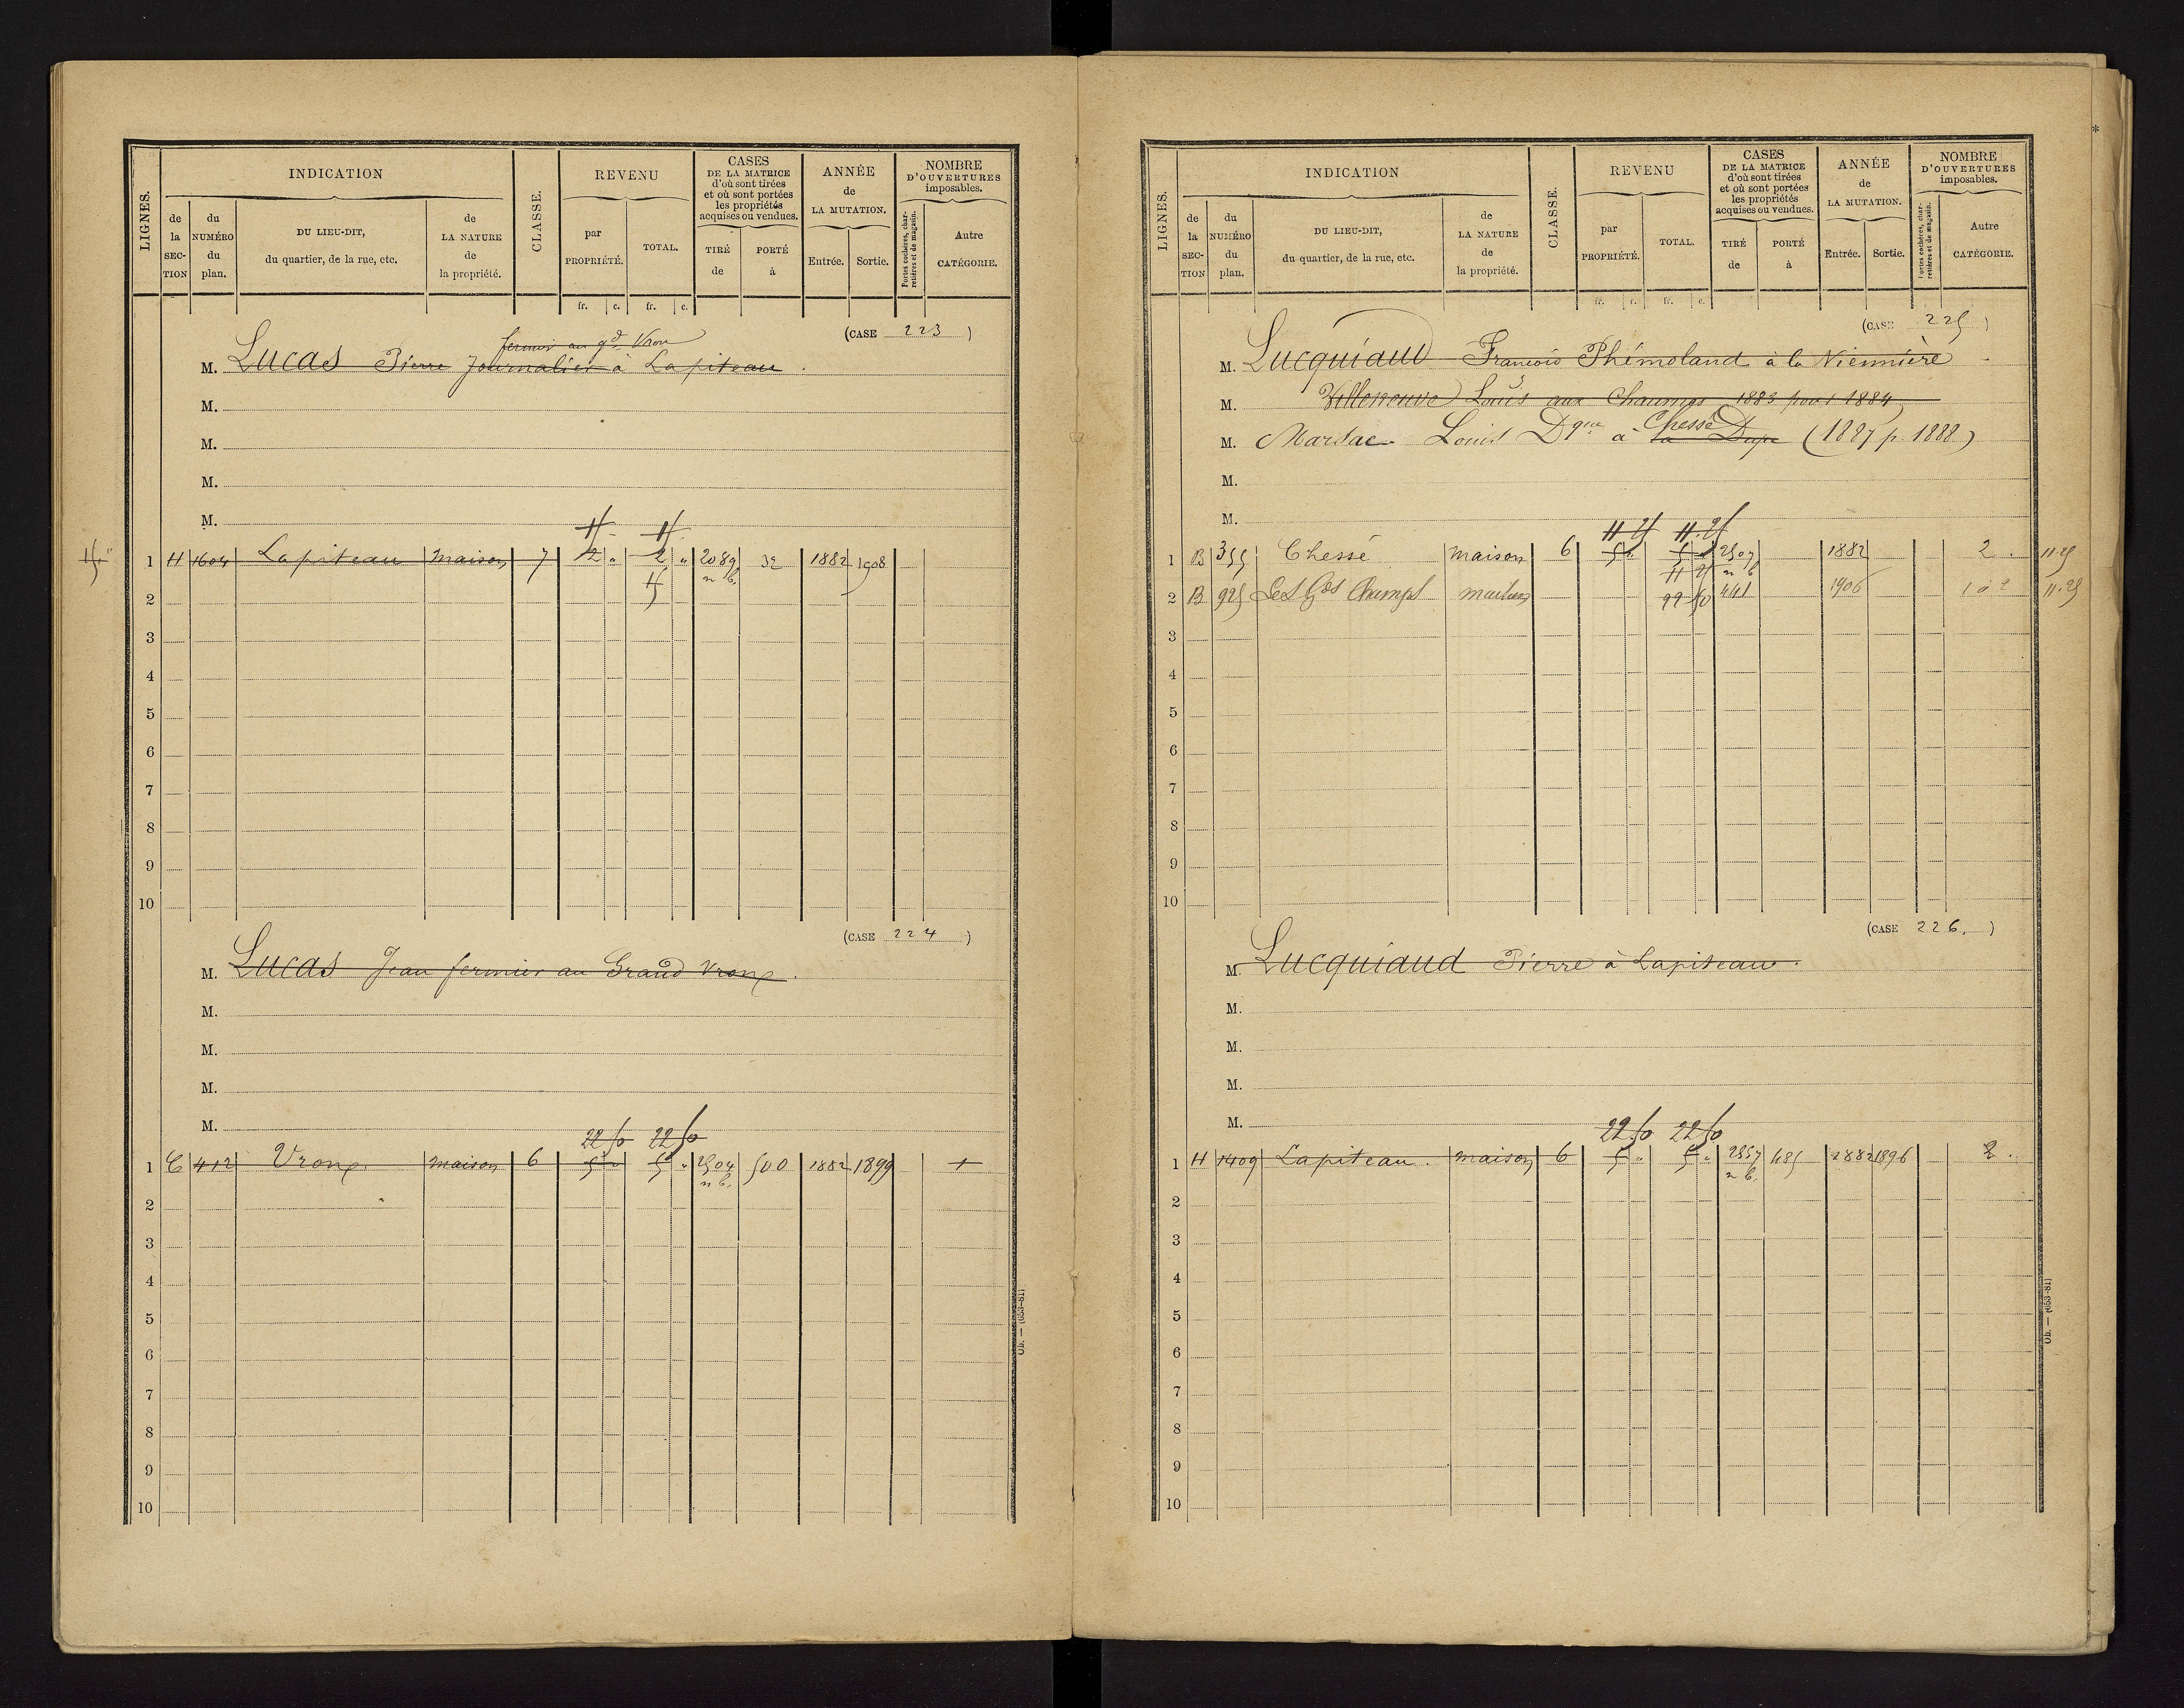 LIGNES.
INDICATION
de la SECTION
du NUMÉRO du plan.
DU LIEU-DIT, du quartier, de la rue, etc.
de LA NATURE de la propriété.
CLASSE.
REVENU
par PROPRIÉTÉ.
TOTAL.
fr. c. fr. c.
CASES DE LA MATRICE d'où sont tirées et où sont portées les propriétés acquises ou vendues.
TIRÉ de
PORTÉ à
ANNÉE de LA MUTATION.
Entrée. Sortie.
NOMBRE D'OUVERTURES imposables.
Portes cochères, charretières et de magasin.
Autre CATÉGORIE.
(CASE 223)
fermier au gd Vron
M. Lucas Pierre Journalier à Lapiteau.
M.
M.
M.
M.
1 H 1604 Lapiteau maison 7 2 " 2 " 2089 32 1882 1908
n b.
2
3
4
5
6
7
8
9
10
(CASE 224)
M. Lucas Jean fermier au Grand Vroux.
M.
M.
M.
M.
22 50 22 50
1 C 412 Vroux. maison 6 5 " 5 " 2504 500 1882 1899 1
n b.
2
3
4
5
6
7
8
9
10
Ob. — (653-81)
LIGNES.
INDICATION
de la SECTION
du NUMÉRO du plan.
DU LIEU-DIT, du quartier, de la rue, etc.
de LA NATURE de la propriété.
CLASSE.
REVENU
par PROPRIÉTÉ.
TOTAL.
fr. c. fr. c.
CASES DE LA MATRICE d'où sont tirées et où sont portées les propriétés acquises ou vendues.
TIRÉ de
PORTÉ à
ANNÉE de LA MUTATION.
Entrée. Sortie.
NOMBRE D'OUVERTURES imposables.
Portes cochères, charretières et de magasin.
Autre CATÉGORIE.
(CASE 225)
M. Lucquiaud François Phémoland à la Viennière
M. Villeneuve Louis aux Chaumes 1883 pour 1884
Chessé
M. Marsac Louis Dque à la Dupe (1887 p. 1888)
M.
M.
11 25 11.25
1 B 355 Chessé maison 6 5 " 5 " 2507 1882 2. 11.25
11 25 n b
2 B 925 Les Gds Champs maison 22 50 441 1906 1 à 2 11.25
3
4
5
6
7
8
9
10
(CASE 226.)
M. Lucquiaud Pierre à Lapiteau.
M.
M.
M.
M.
22 50 22 50
1 H 1409 Lapiteau. maison 6 5 " 5 " 2357 485 1882 1896 2.
n b.
2
3
4
5
6
7
8
9
10
Ob. — (653-81)